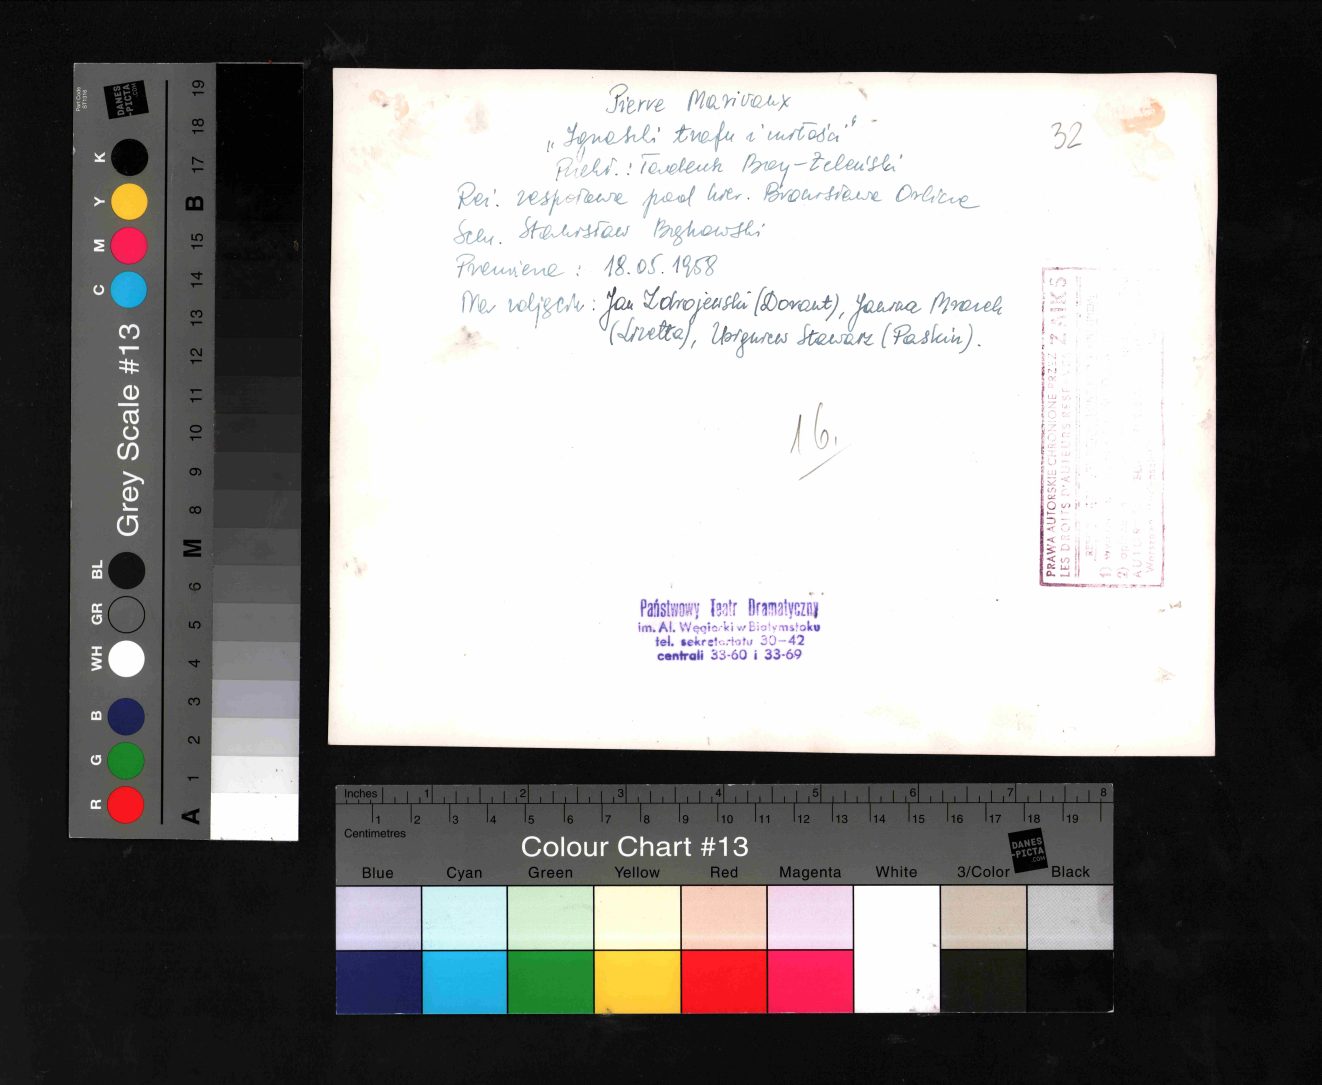 Pierre Marivaux
„Igraszki trafu i miłości”
Przekł.: Tadeusz Boy-Żeleński
Reż. zespołowa pod kier. Bronisława Orlicza
Scen. Stanisław Bąkowski
Premiera: 18.05.1958
Na zdjęciu: Jan Zdrojewski (Dorant), Janina Mrazek
(Lizetta), Zbigniew Stawarz (Paskin).
32
16.
Państwowy Teatr Dramatyczny
im. Al. Węgierki w Białymstoku
tel. sekretariatu 30-42
centrali 33-60 i 33-69
PRAWA AUTORSKIE CHRONIONE PRZEZ ZAIKS
LES DROITS D'AUTEURS
1)
2)
Part Code
DANES
-PICTA
.COM
Grey Scale #13
K
Y
M
C
BL
GR
WH
B
G
R
19
18
17
B
15
14
13
12
11
10
9
8
M
6
5
4
3
2
1
A
Inches 1 2 3 4 5 6 7 8
1 2 3 4 5 6 7 8 9 10 11 12 13 14 15 16 17 18 19
Centimetres
Colour Chart #13
DANES
-PICTA
.COM
Blue Cyan Green Yellow Red Magenta White 3/Color Black